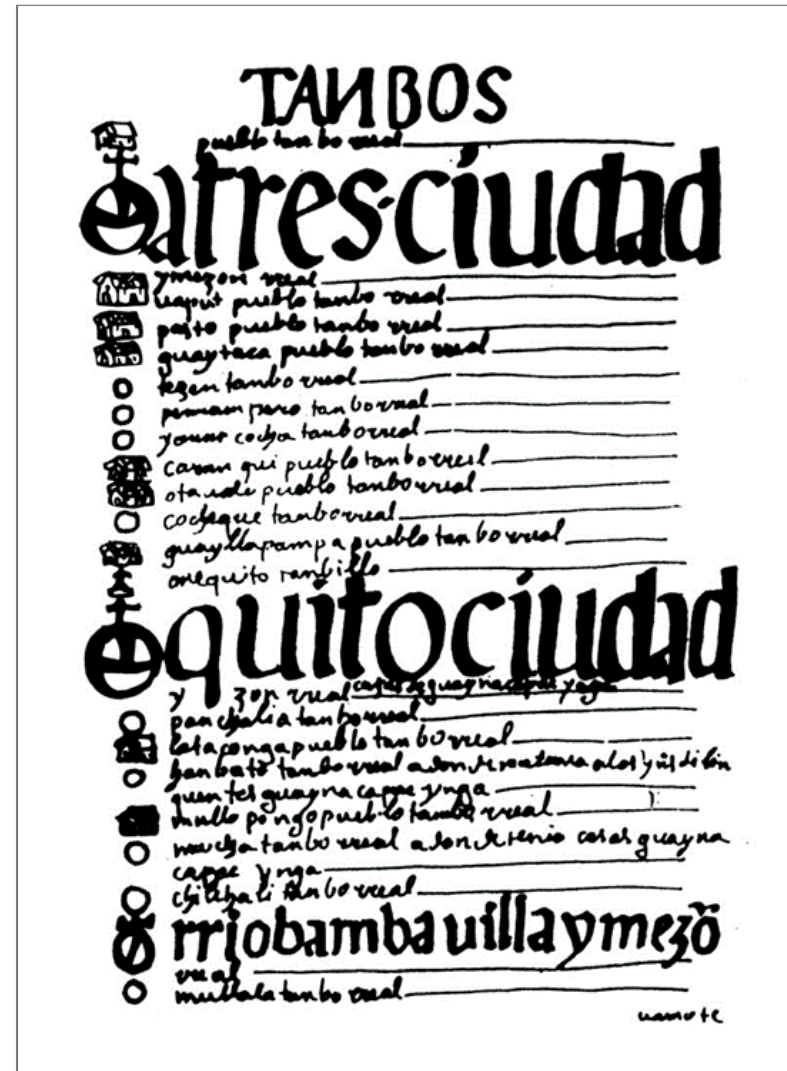 TANBOS
pueblo tanbo rreal
atres·ciudad
y mezon rreal
pueblo tanbo rreal
pasto pueblo tanbo rreal
guaytaca pueblo tanbo rreal
tanbo rreal
tanbo rreal
cocha tanbo rreal
caran qui pueblo tanbo rreal
otaualo pueblo tanbo rreal
cocheque tanbo rreal
guayllapampa pueblo tanbo rreal
anequito tanbillo
quitociudad
y zon rreal casas de guaynacapac ynga
panchalia tanbo rreal
latacongapueblo tanbo rreal
hanbato tanbo rreal adonde a los
guaynacapac ynga
mullo pongo pueblo tanbo rreal
mucha tanbo rreal adonde tenia casas guayna
capac ynga
tanbo rreal
rriobamba uilla y mezō
rreal
tanbo rreal
uamote